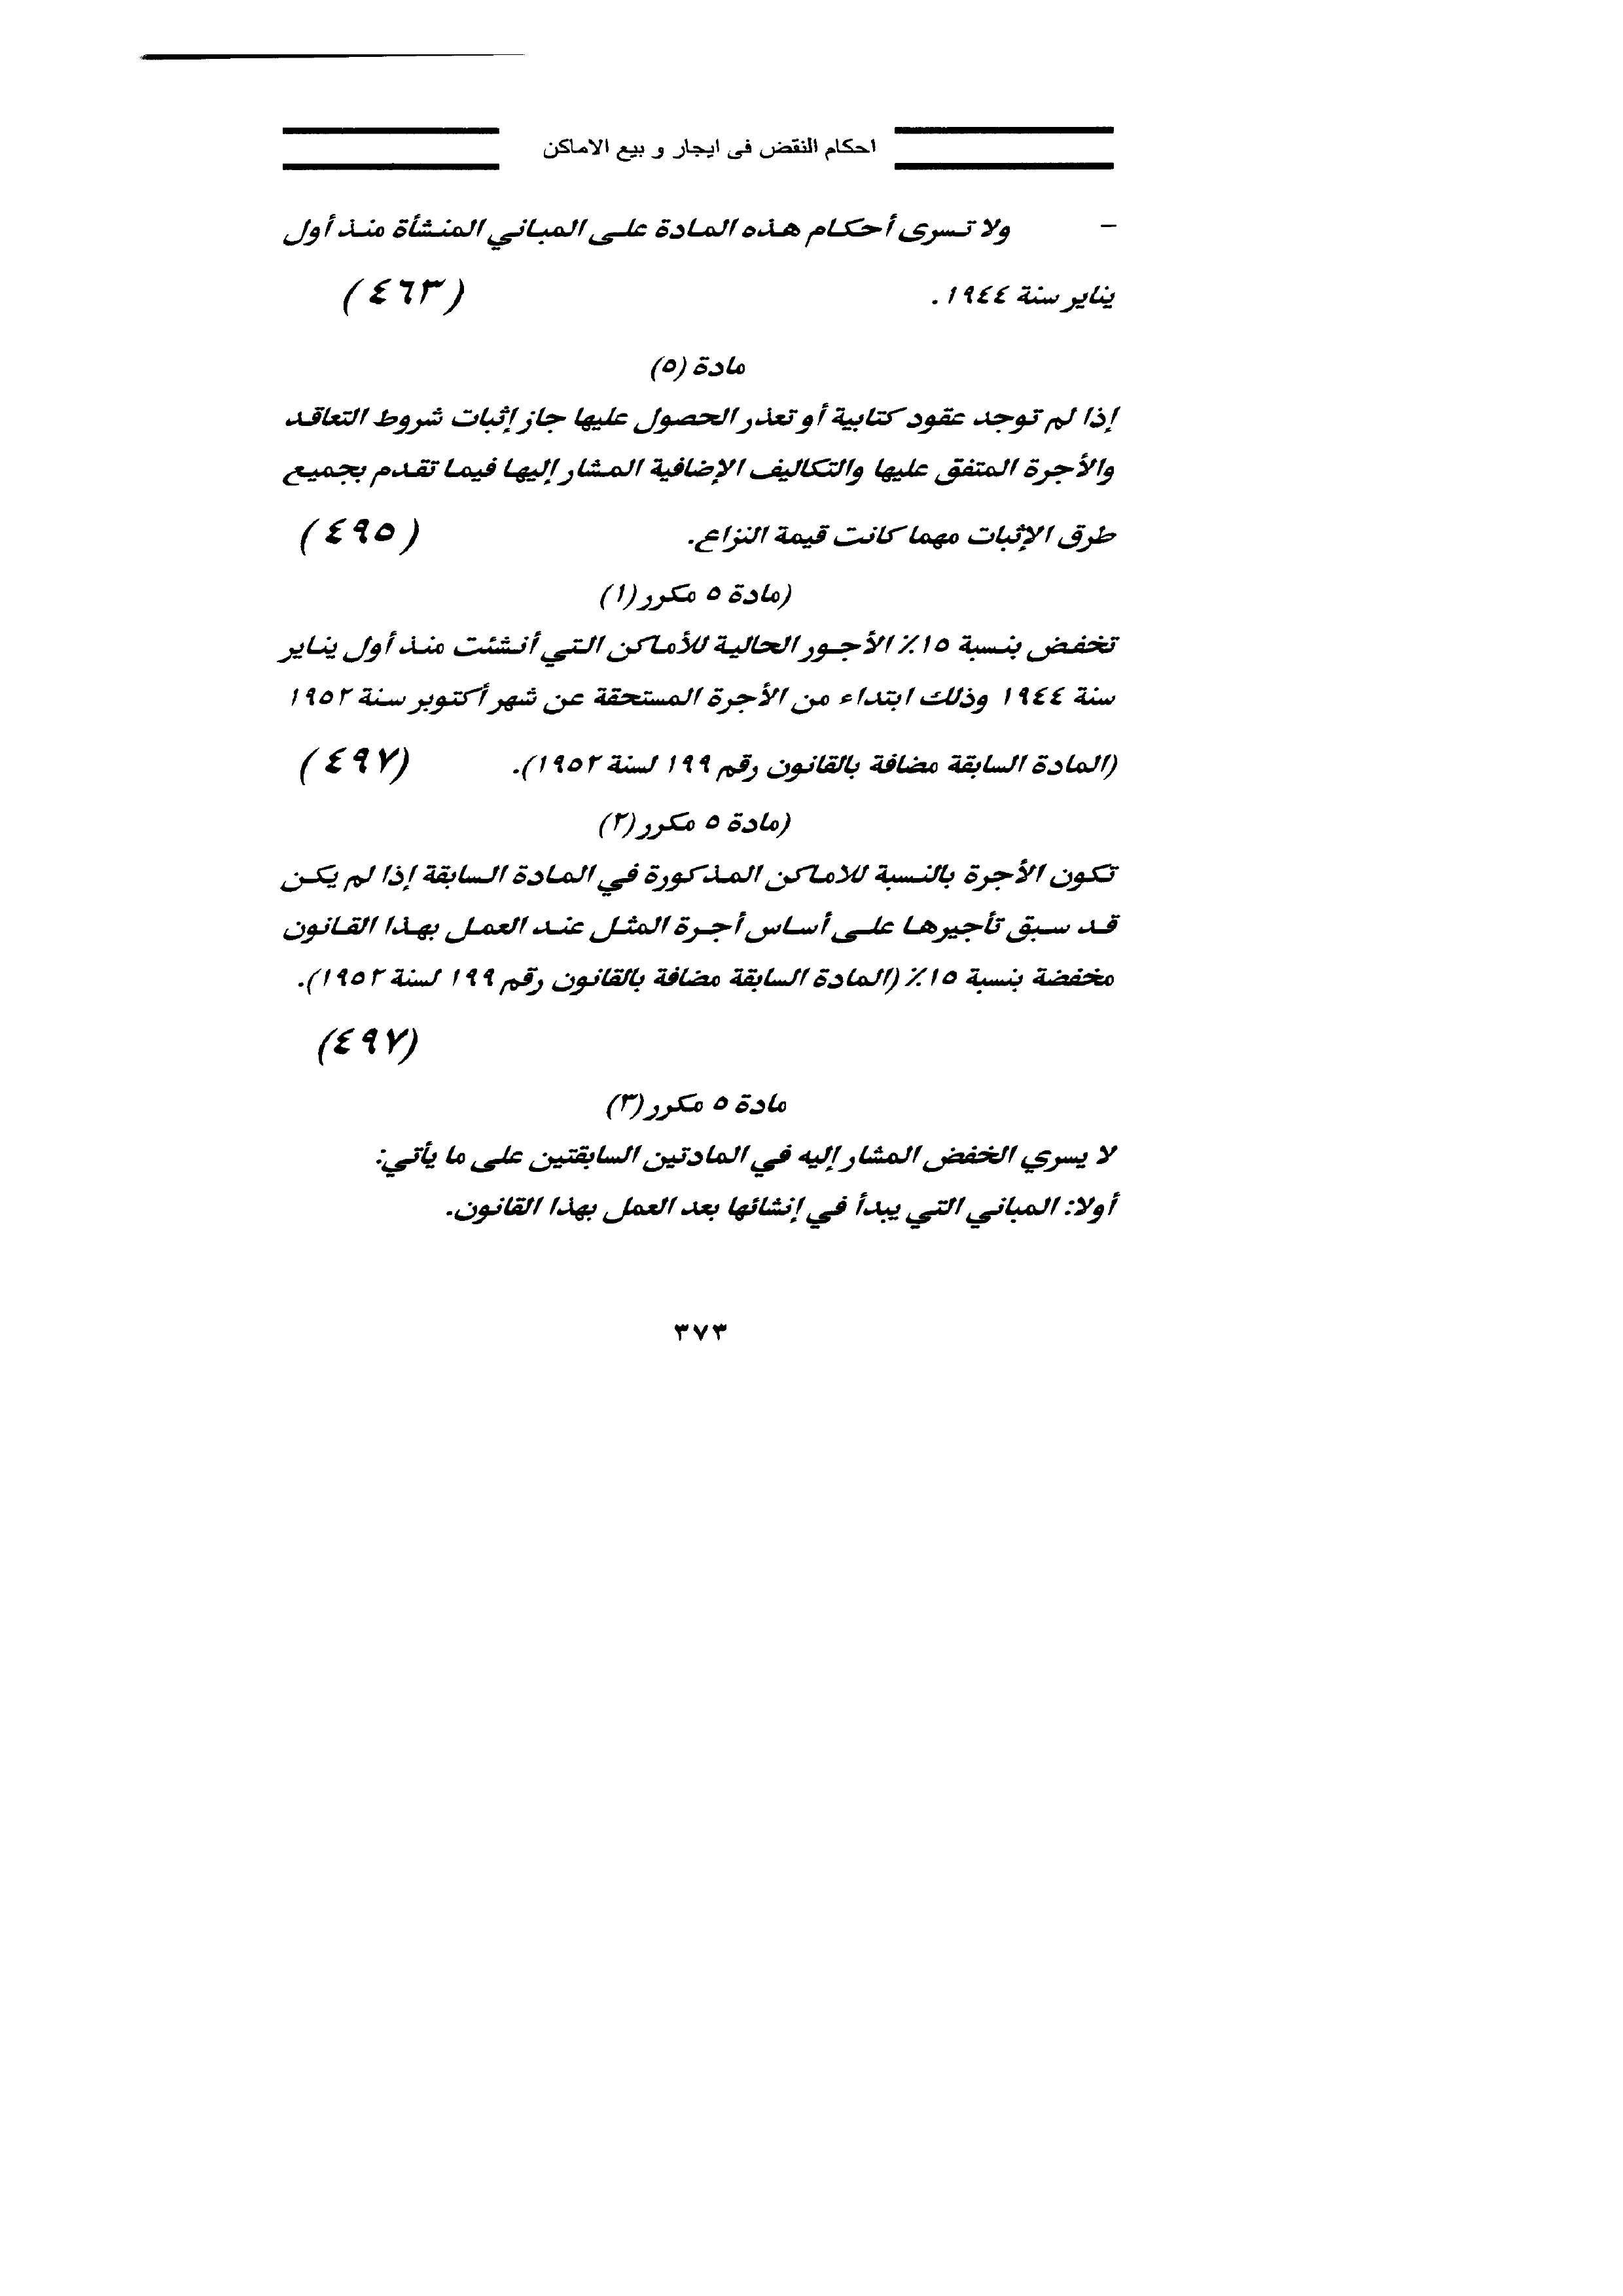 احكام النقض فى ايجار و بيع الاماكن
– ولا تسرى أحكام هذه المادة على المباني المنشأة منذ أول
يناير سنة ١٩٤٤ . (٤٦٣)
مادة (٥)
إذا لم توجد عقود كتابية أو تعذر الحصول عليها جاز إثبات شروط التعاقد
والأجرة المتفق عليها والتكاليف الإضافية المشار إليها فيما تقدم بجميع
طرق الإثبات مهما كانت قيمة النزاع. (٤٩٥)
(مادة ٥ مكرر(١)
تخفض بنسبة ١٥٪ الأجور الحالية للأماكن التي أنشئت منذ أول يناير
سنة ١٩٤٤ وذلك ابتداء من الأجرة المستحقة عن شهر أكتوبر سنة ١٩٥٢
(المادة السابقة مضافة بالقانون رقم ١٩٩ لسنة ١٩٥٢). (٤٩٧)
(مادة ٥ مكرر(٢)
تكون الأجرة بالنسبة للاماكن المذكورة في المادة السابقة إذا لم يكن
قد سبق تأجيرها على أساس أجرة المثل عند العمل بهذا القانون
مخفضة بنسبة ١٥٪ (المادة السابقة مضافة بالقانون رقم ١٩٩ لسنة ١٩٥٢).
(٤٩٧)
مادة ٥ مكرر(٣)
لا يسري الخفض المشار إليه في المادتين السابقتين على ما يأتي:
أولا: المباني التي يبدأ في إنشائها بعد العمل بهذا القانون.
٣٧٣